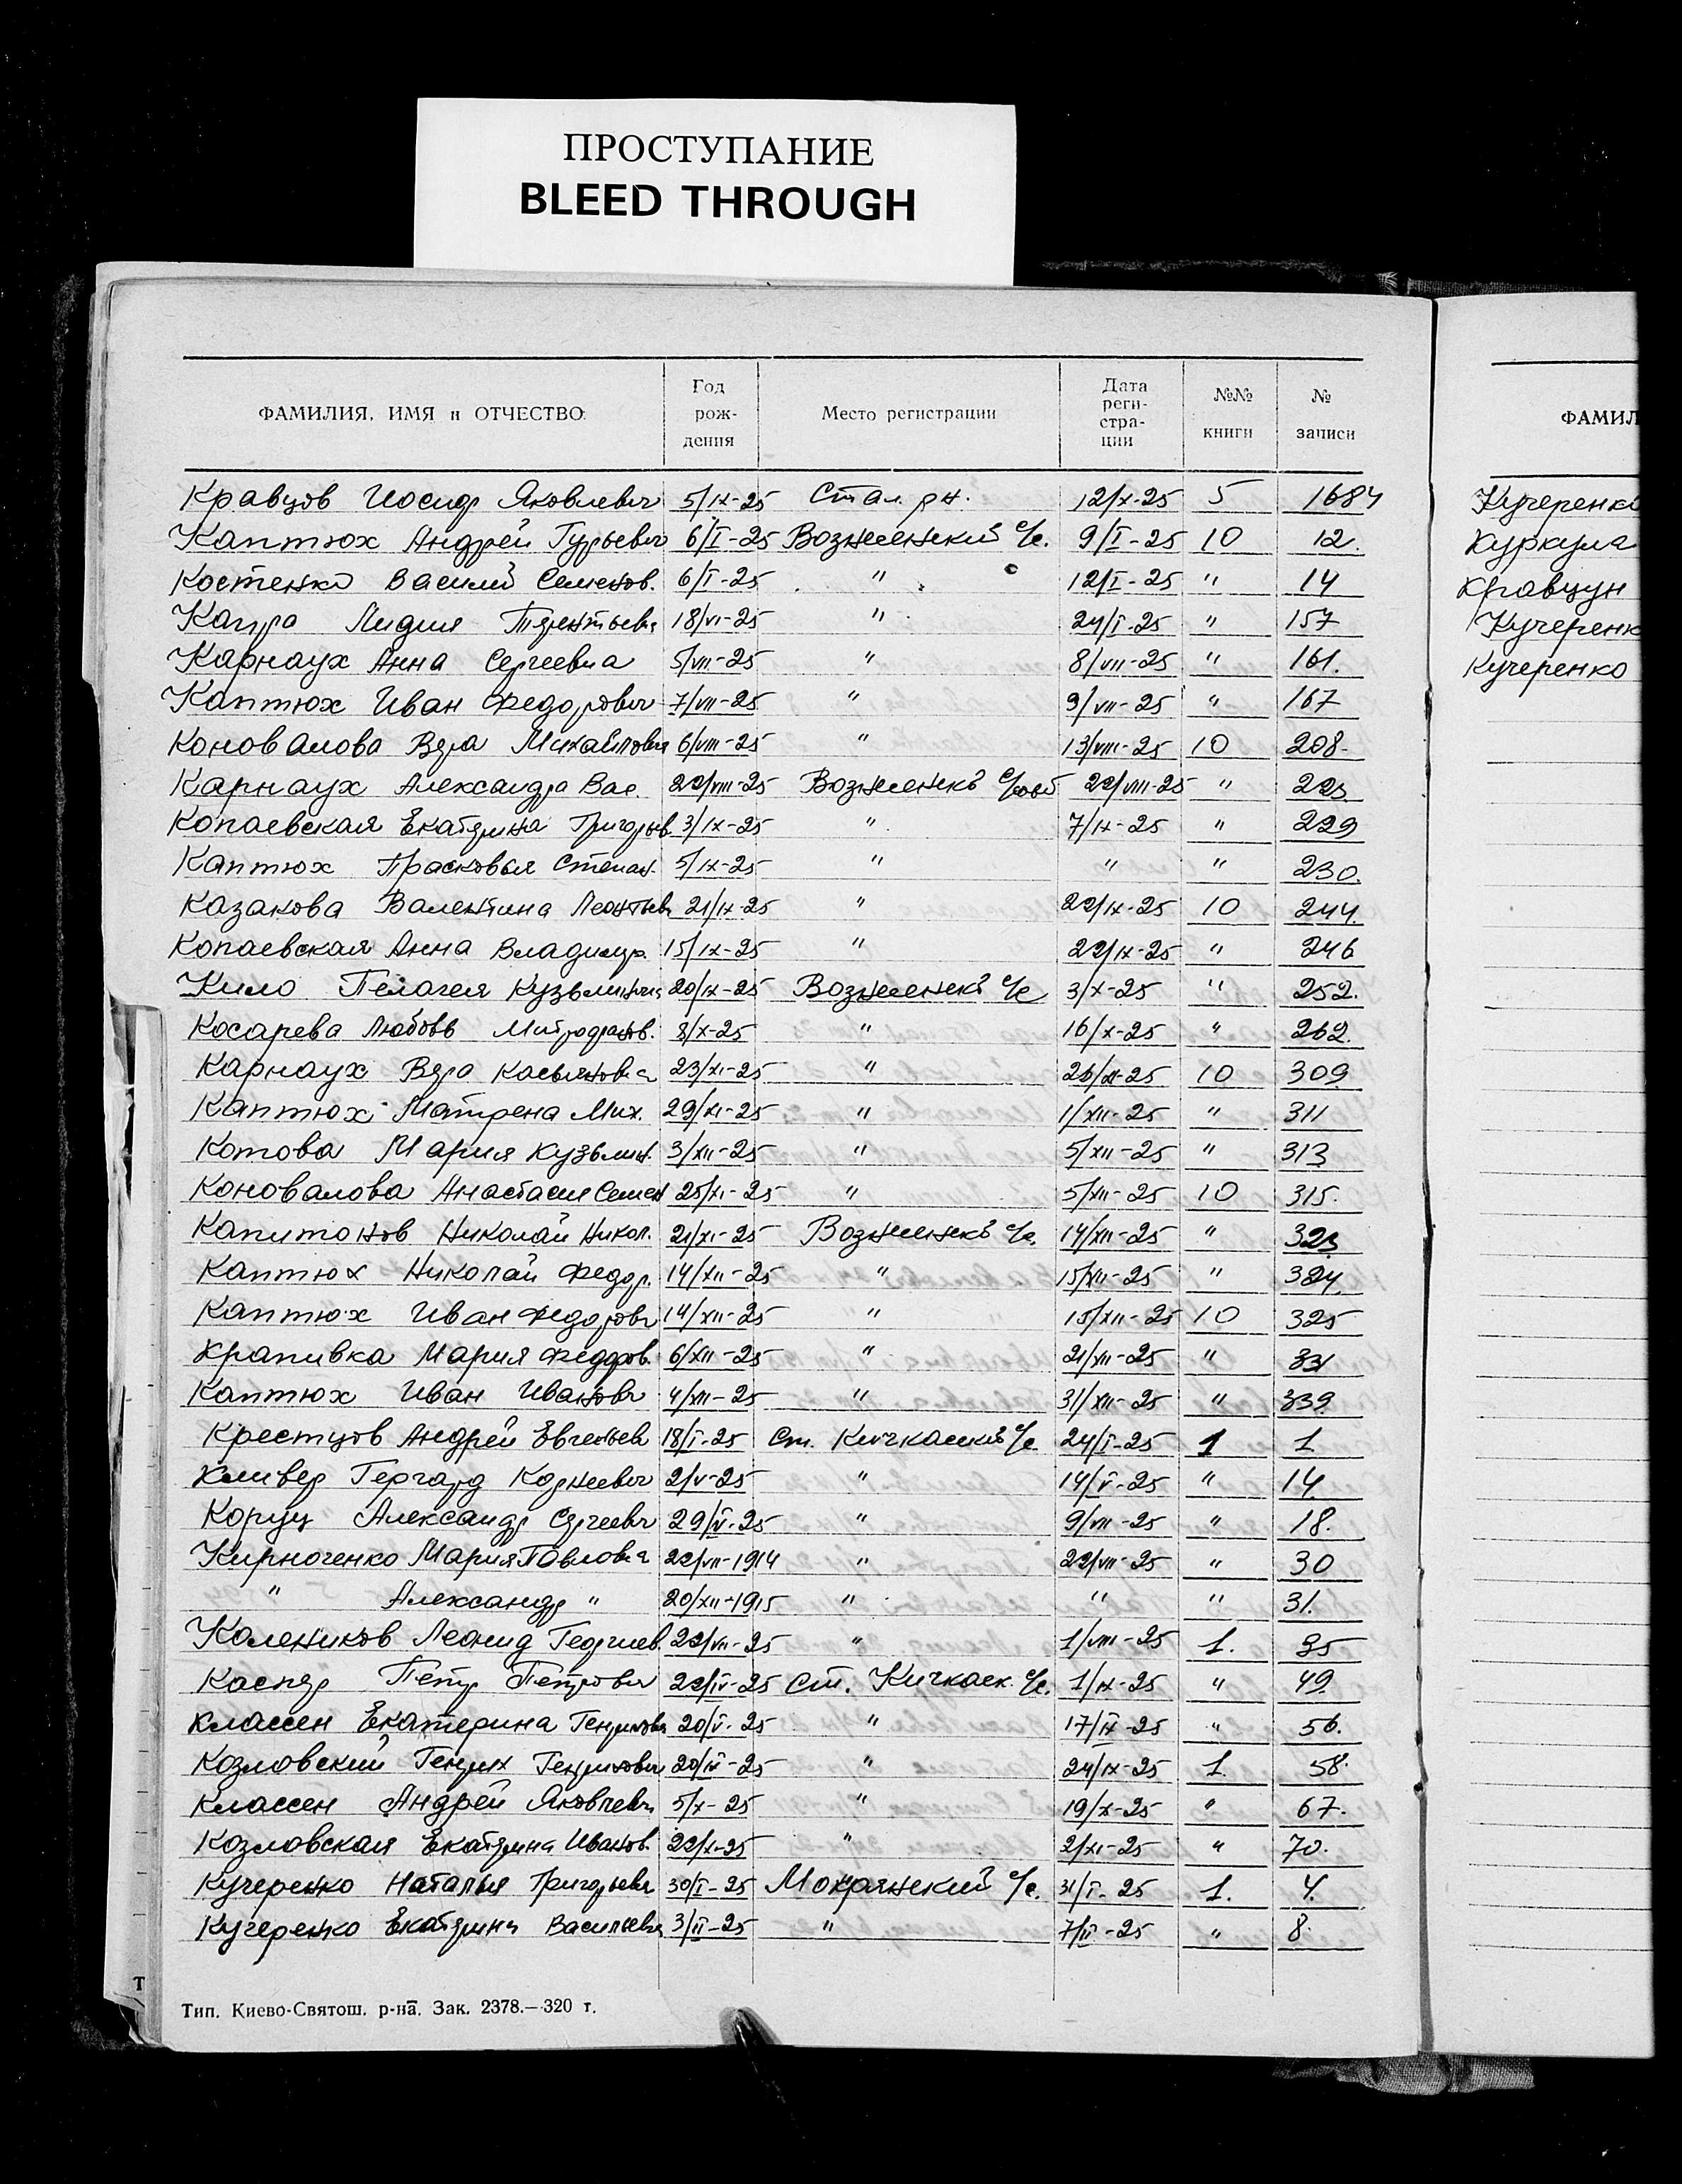 ПРОСТУПАНИЕ
BLEED THROUGH
ФАМИЛИЯ, ИМЯ и ОТЧЕСТВО. Год рождения Место регистрации Дата регистрации №№ книги № записи
Кравцов Иосиф Яковлевич 5/IX-25 Стал. рн. 12/X-25 5 1684
Каптюх Андрей Гурьевич 6/I-25 Вознсенский с/с. 9/I-25 10 12.
Костенко Василий Семенов. 6/I-25 " 12/I-25 " 14
Лидия Терентьевна 18/VI-25 " 24/I-25 " 157
Карнаух Анна Сергеевна 5/VII-25 " 8/VII-25 " 161.
Каптюх Иван Федорович 7/VII-25 " 9/VII-25 " 167
Коновалова Вера Михайловна 6/VIII-25 " 13/VIII-25 10 208.
Карнаух Александра Вас. 22/VIII-25 22/VIII-25 " 223
Копаевская Екатерина Григорьев. 3/IX-25 " 7/IX-25 " 229
Каптюх Прасковья Степан. 5/IX-25 " " " 230.
Казакова Валентина Леонтьев 21/IX-25 " 22/IX-25 10 244.
Копаевская Анна Владимир. 15/IX-25 " 22/IX-25 " 246
Кило Пелагея Кузьминична 20/IX-25 3/X-25 " 252.
Косарева Любовь Митрофанов. 8/X-25 " 16/X-25 " 262.
Карнаух Вера Касьяновна 23/XI-25 " 26/XI-25 10 309
Каптюх Матрена Мих. 29/XI-25 " 1/XII-25 " 311
Котова Мария Кузьмин. 3/XII-25 " 5/XII-25 " 313
Коновалова Анастасия Семен 25/XI-25 " 5/XII-25 10 315.
Капитонов Николай Никол. 21/XI-25 14/XII-25 " 323
Каптюх Николай Федор. 14/XII-25 " 15/XII-25 " 324
Каптюх Иван Федорович 14/XII-25 " 15/XII-25 10 325
Крапивка Мария Федоров. 6/XII-25 " 21/XII-25 " 331
Каптюх Иван Иванович 4/XII-25 " 31/XII-25 " 339
Крестцов Андрей Евгеньев 18/I-25 Ст. Кичкасский с/с 24/I-25 1 1
Кливер Гергард Корнеевич 2/V-25 " 14/V-25 " 14
Коруц Александр Сергеевич 29/V-25 " 9/VII-25 " 18.
Кирноченко Мария Павловна 22/VII-1914 " 22/VII-25 " 30
" Александр " 20/XII-1915 " " " 31.
Калеников Леонид Георгиев. 22/VII-25 " 1/VIII-25 1. 35
Каспер Петр Петрович 22/IV-25 Ст. Кичкасск. с/с. 1/IX-25 " 49
Классен Екатерина Генриховна 20/V-25 " 17/IX-25 " 56.
Козловский Генрих Генрихович 20/IV-25 " 24/IX-25 1. 58.
Классен Андрей Яковлевич 5/X-25 " 19/X-25 " 67.
Козловская Екатерина Иванов. 22/X-25 " 2/XI-25 " 70.
Кучеренко Наталья Григорьевна 30/I-25 Мокрянский с/с. 31/I-25 1. 4.
Кучеренко Екатерина Васильевна 3/II-25 " 7/II-25 " 8.
Тип. Киево-Святош. р-на. Зак. 2378.—320 т.
ФАМИЛ
Кучеренко
Куркула
Кравцун
Кучеренк
Кучеренко